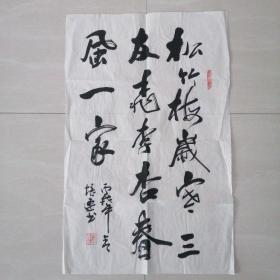 松竹梅岁寒三
友桃李杏春
风一家
丙戌年
书